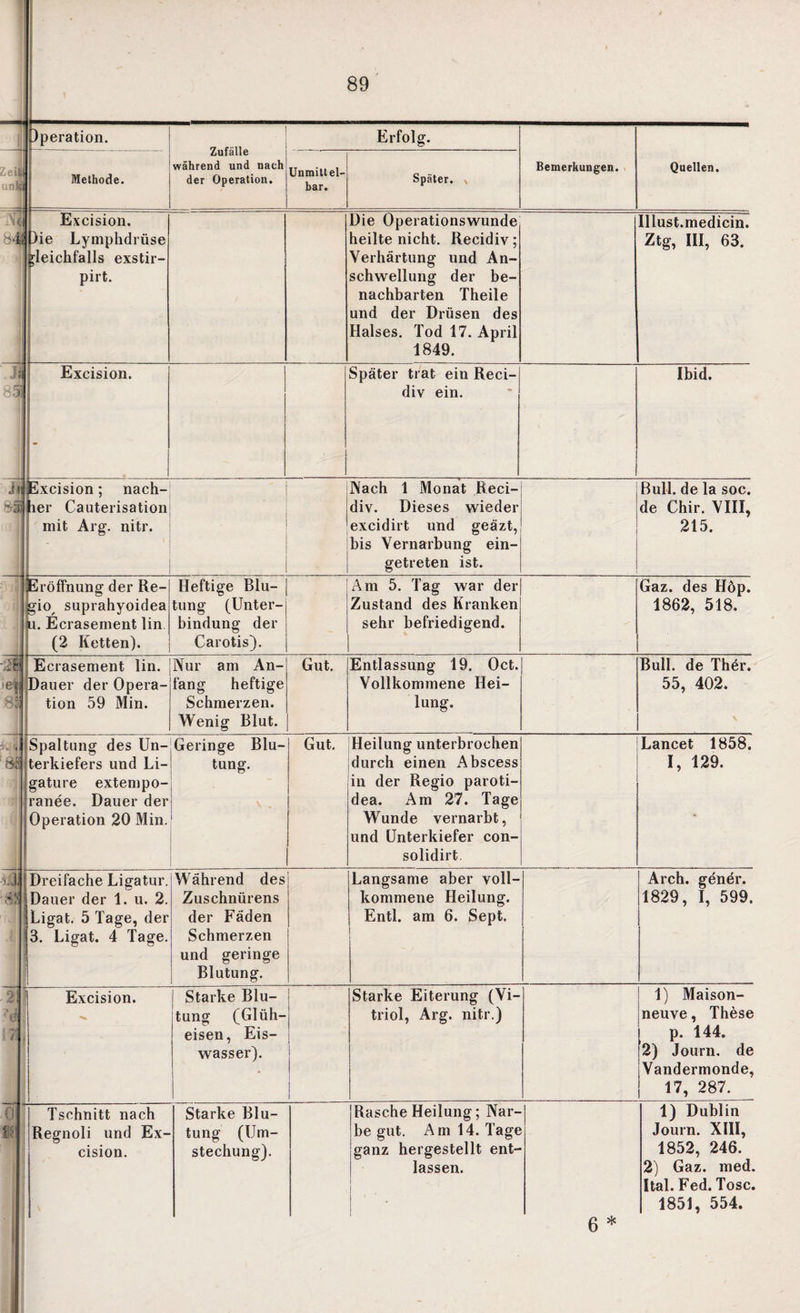 89
Operation.
Zufälle
während und nach
der Operation.
Erfolg.
Bemerkungen.
Quellen.
Methode.
Unmittel-
bar.
Später.
Excision.
Die Lymphdrüse
gleichfalls exstir-
pirt.
Die Operationswunde
heilte nicht. Recidiv;
Verhärtung und An-
schwellung der be-
nachbarten Theile
und der Drüsen des
Halses. Tod 17. April
1849.
Illust.medicin.
Ztg, III, 63.
Excision.
Später trat ein Reci-
div ein.
Ibid.
Excision; nach-
her Cauterisation
mit Arg. nitr.
Nach 1 Monat Reci-
div. Dieses wieder
excidirt und geäzt,
bis Vernarbung ein-
getreten ist.
Bull. de la soc.
de Chir. VIII,
215.
Eröffnung der Re-
gio suprahyoidea
u. Écrasement lin.
(2 Ketten).
Heftige Blu-
tung (Unter-
bindung der
Carotis).
Am 5. Tag war der
Zustand des Kranken
sehr befriedigend.
Gaz. des Hôp.
1862, 518.
Ecrasement lin.
Dauer der Opera-
tion 59 Min.
Nur am An-
fang heftige
Schmerzen.
Wenig Blut.
Gut.
Entlassung 19. Oct.
Vollkommene Hei-
lung.
Bull. de Thér.
55, 402.
Spaltung des Un-
terkiefers und Li-
gature extempo-
ranée. Dauer der
Operation 20 Min.
Geringe Blu-
tung.
Gut.
Heilung unterbrochen
durch einen Abscess
in der Regio paroti-
dea. Am 27. Tage
Wunde vernarbt,
und Unterkiefer con-
solidirt.
Lancet 1858.
I, 129.
Dreifache Ligatur.
Dauer der 1. u. 2.
Ligat. 5 Tage, der
3. Ligat. 4 Tage.
Während des
Zuschnürens
der Fäden
Schmerzen
und geringe
Blutung.
Langsame aber voll-
kommene Heilung.
Entl. am 6. Sept.
Arch. génér.
1829, I, 599.
Excision.
Starke Blu-
tung (Glüh-
eisen, Eis-
wasser).
Starke Eiterung (Vi-
triol, Arg. nitr.)
1) Maison-
neuve, Thèse
p. 144.
2) Journ. de
Vandermonde,
17, 287.
Tschnitt nach
Regnoli und Ex-
cision.
Starke Blu-
tung (Um-
stechung).
Rasche Heilung; Nar-
be gut. Am 14. Tage
ganz hergestellt ent-
lassen.
1) Dublin
Journ. XIII,
1852, 246.
2) Gaz. med.
Ital. Fed. Tosc.
1851, 554.
6 *